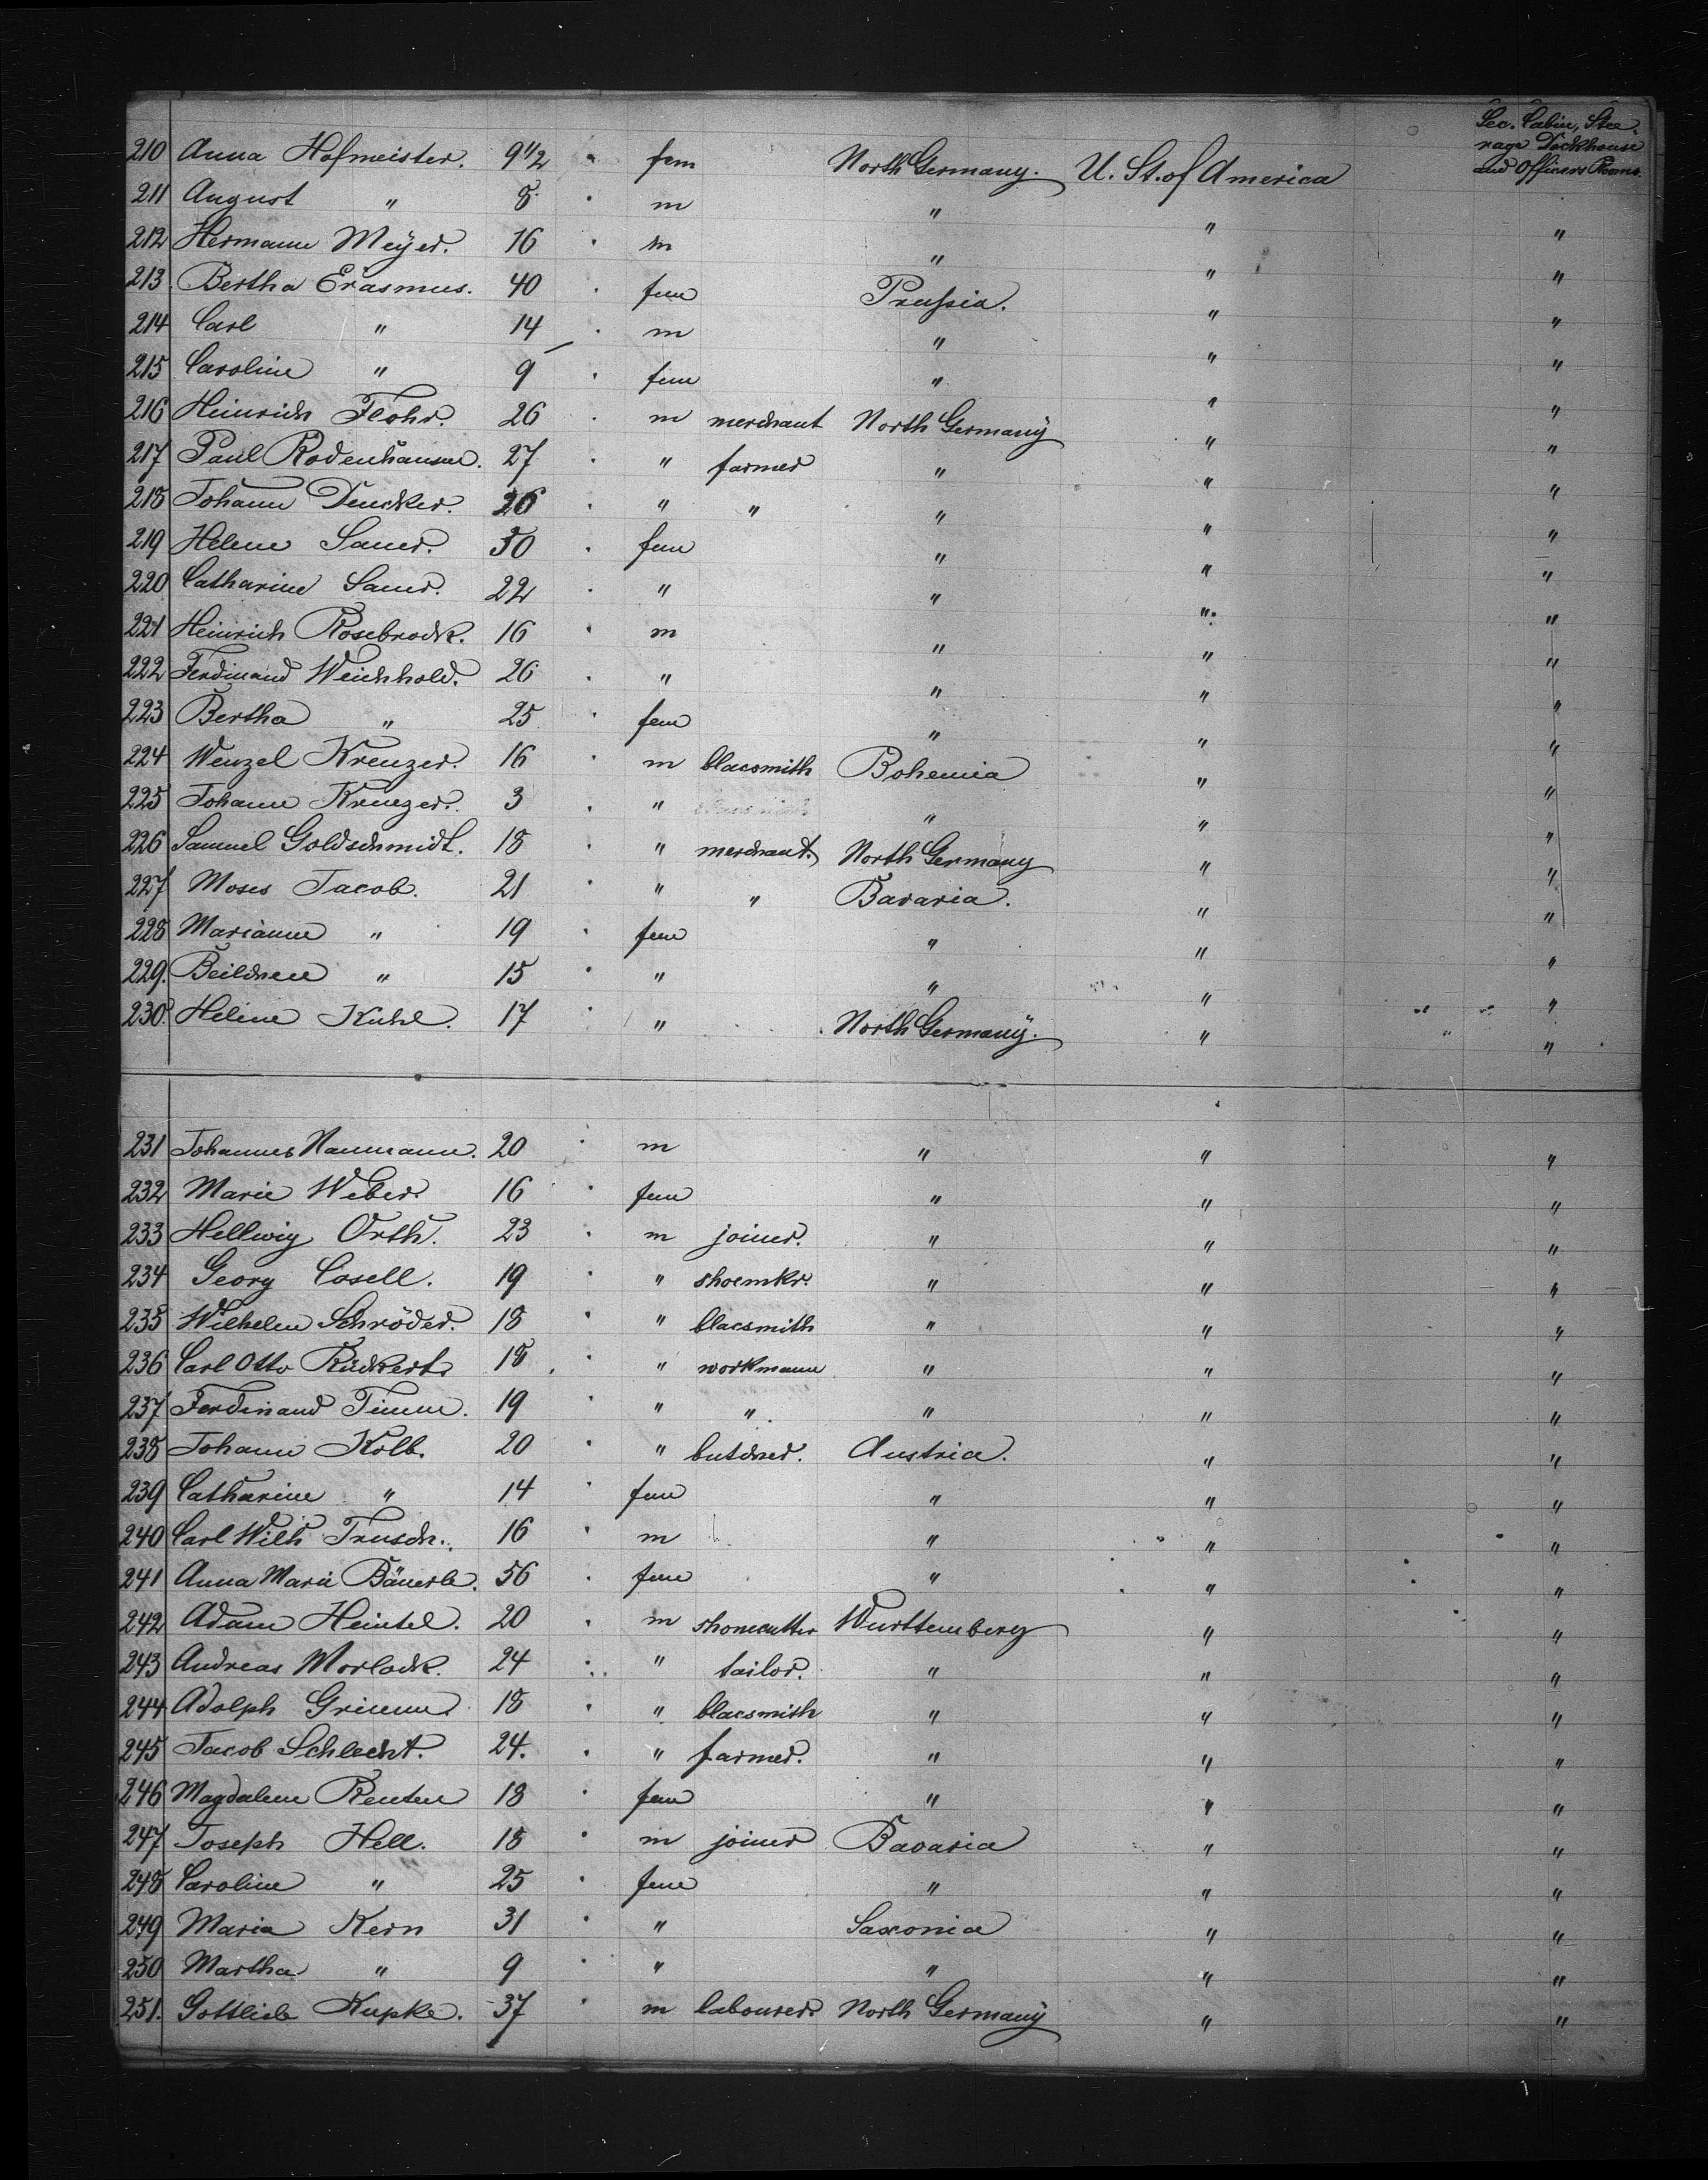 Sec. Cabin, Stee-
rage Deckhouse
and Officers Rooms.
210 Anna Hofmeister. 9 1/2 " fem North Germany. U. St. of America
211 August " 8 " m " " "
212 Hermann Meÿer. 16 " m " " "
213. Bertha Erasmus. 40 " fem Prußia. " "
214 Carl " 14 " m " " "
215 Caroline " 9 " fem " " "
216 Heinrich Flohr. 26 " m merchant North Germanÿ " "
217 Paul Rodenhausen. 27 " " farmer " " "
218 Johann Dencker. 26 " " " " " "
219 Helene Sauer. 30 " fem " " "
220 Catharine Sauer. 22 " " " " "
221 Heinrich Rosebrock. 16 " m " " "
222 Ferdinand Weichhold. 26 " " " " "
223 Bertha " 25 " fem " " "
224 Wenzel Kreuzer. 16 " m blacsmith Bohemia " "
225 Johann Kreuzer. 3 " " " " "
226 Samuel Goldschmidt. 18 " " merchant. North Germany " "
227 Moses Jacob. 21 " " " Bavaria. " "
228 Marianne " 19 " fem " " "
229. Beilchen " 15 " " " " "
230. Heline Kuhl. 17 " " North Germanÿ. " "
231 Johannes Naumann. 20 " m " " "
232 Marie Weber 16 " fem " " "
233 Hellwig Orth. 23 " m joiner. " " "
234 Georg Casell. 19 " " shoemkr. " " "
235 Wilhelm Schröder. 18 " " blacsmith " " "
236 Carl Otto Rückert 18 " " workmann " " "
237 Ferdinand Timm. 19 " " " " " "
238 Johann Kolb. 20 " " butcher. Austria. " "
239 Catharine " 14 " fem " " "
240 Carl Wilh Trusch. 16 " m " " "
241 Anna Marie Bäuerle. 56 " fem " " "
242 Adam Heintel. 20 " m shonecutter Wurttemberg " "
243 Andreas Morlock. 24 " " tailor. " " "
244 Adolph Grimm 18 " " blacsmith " " "
245 Jacob Schlecht. 24. " " farmer. " " "
246 Magdalene Renten 18 " fem " " "
247 Joseph Hell. 18 " m joiner Bavaria " "
248 Caroline " 25 " fem " " "
249 Maria Kern 31 " " Saxonia " "
250 Martha " 9 " " " " "
251. Gottlieb Kupke. 37 " m labourer North Germanÿ " "